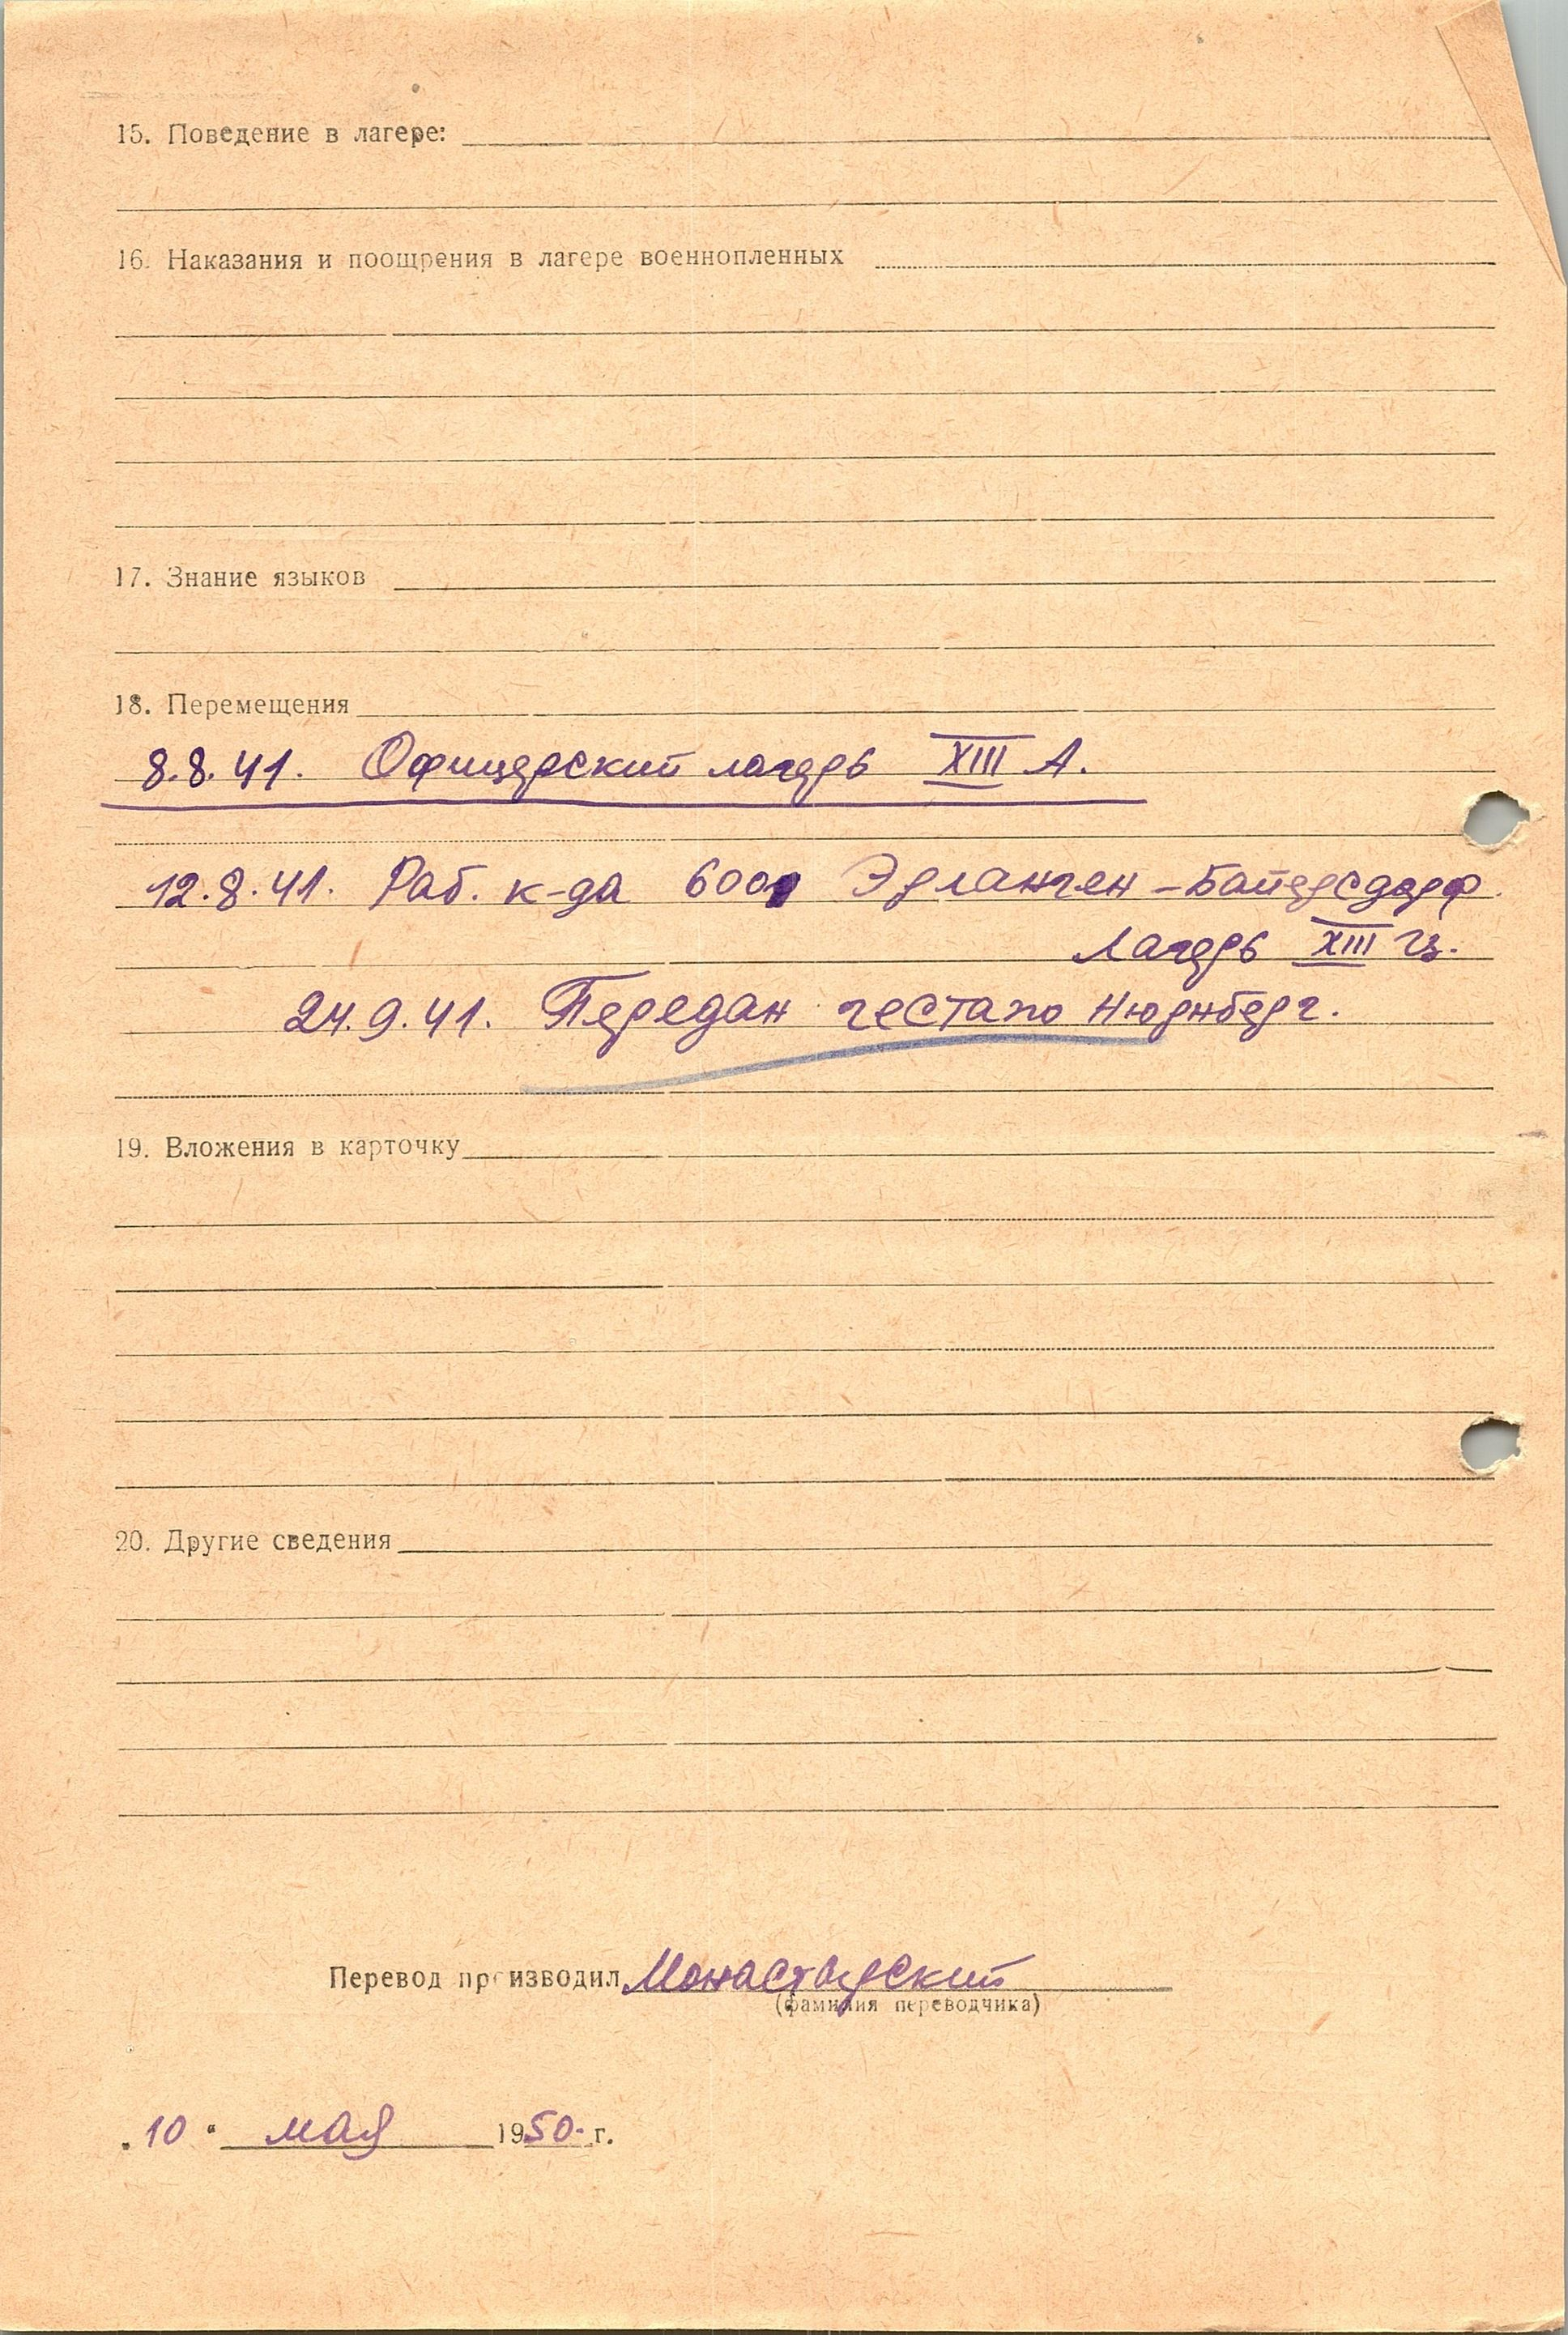 15. Поведение в лагере:
16. Наказания и поощрения в лагере военнопленных
17. Знание языков
18. Перемещения
8.8.41. Офицерский лагерь XIII А.
12.8.41. Раб. к-да 6001 Эрланген-Байерсдорф.
Лагерь XIII Ц.
24.9.41. Передан гестапо Нюрнберг.
19. Вложения в карточку
20. Другие сведения
Перевод производил Монастырский
(фамилия переводчика)
„10“ мая 1950 г.